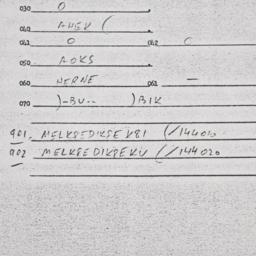 030 O
040 AHGV (
041 O 042 C
050 AOKS
060 HERNE 061 —
070 )-BU-- )BIK
901. MELKSEDIKSEKBI (/144010
902 MELKSEDIKSEKU (/144020